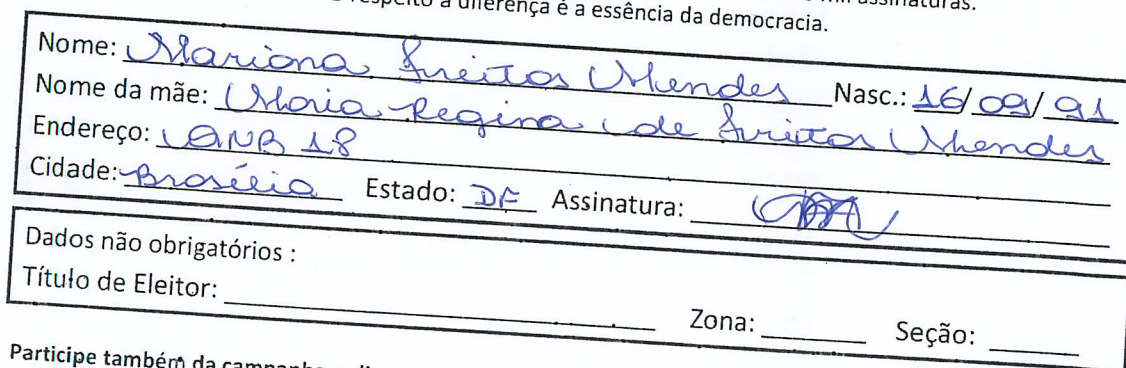 respeito à diferença é a essência da democracia.
Nome: Mariana Freitas Mendes Nasc.: 16/09/91
Nome da mãe: Maria Regina de Freitas Mendes
Endereço: QNB 18
Cidade: Brasília Estado: DF Assinatura:
Dados não obrigatórios :
Título de Eleitor: Zona: Seção:
Participe também da campanha